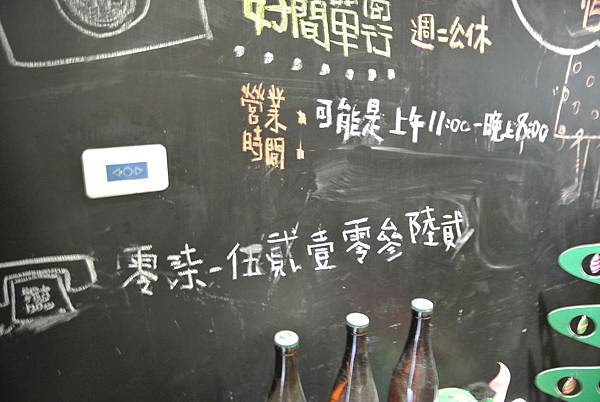 好間單行
週二公休
營業時間:可能是上午11:00-晚上8:00
零柒-伍貳壹零參陸貳